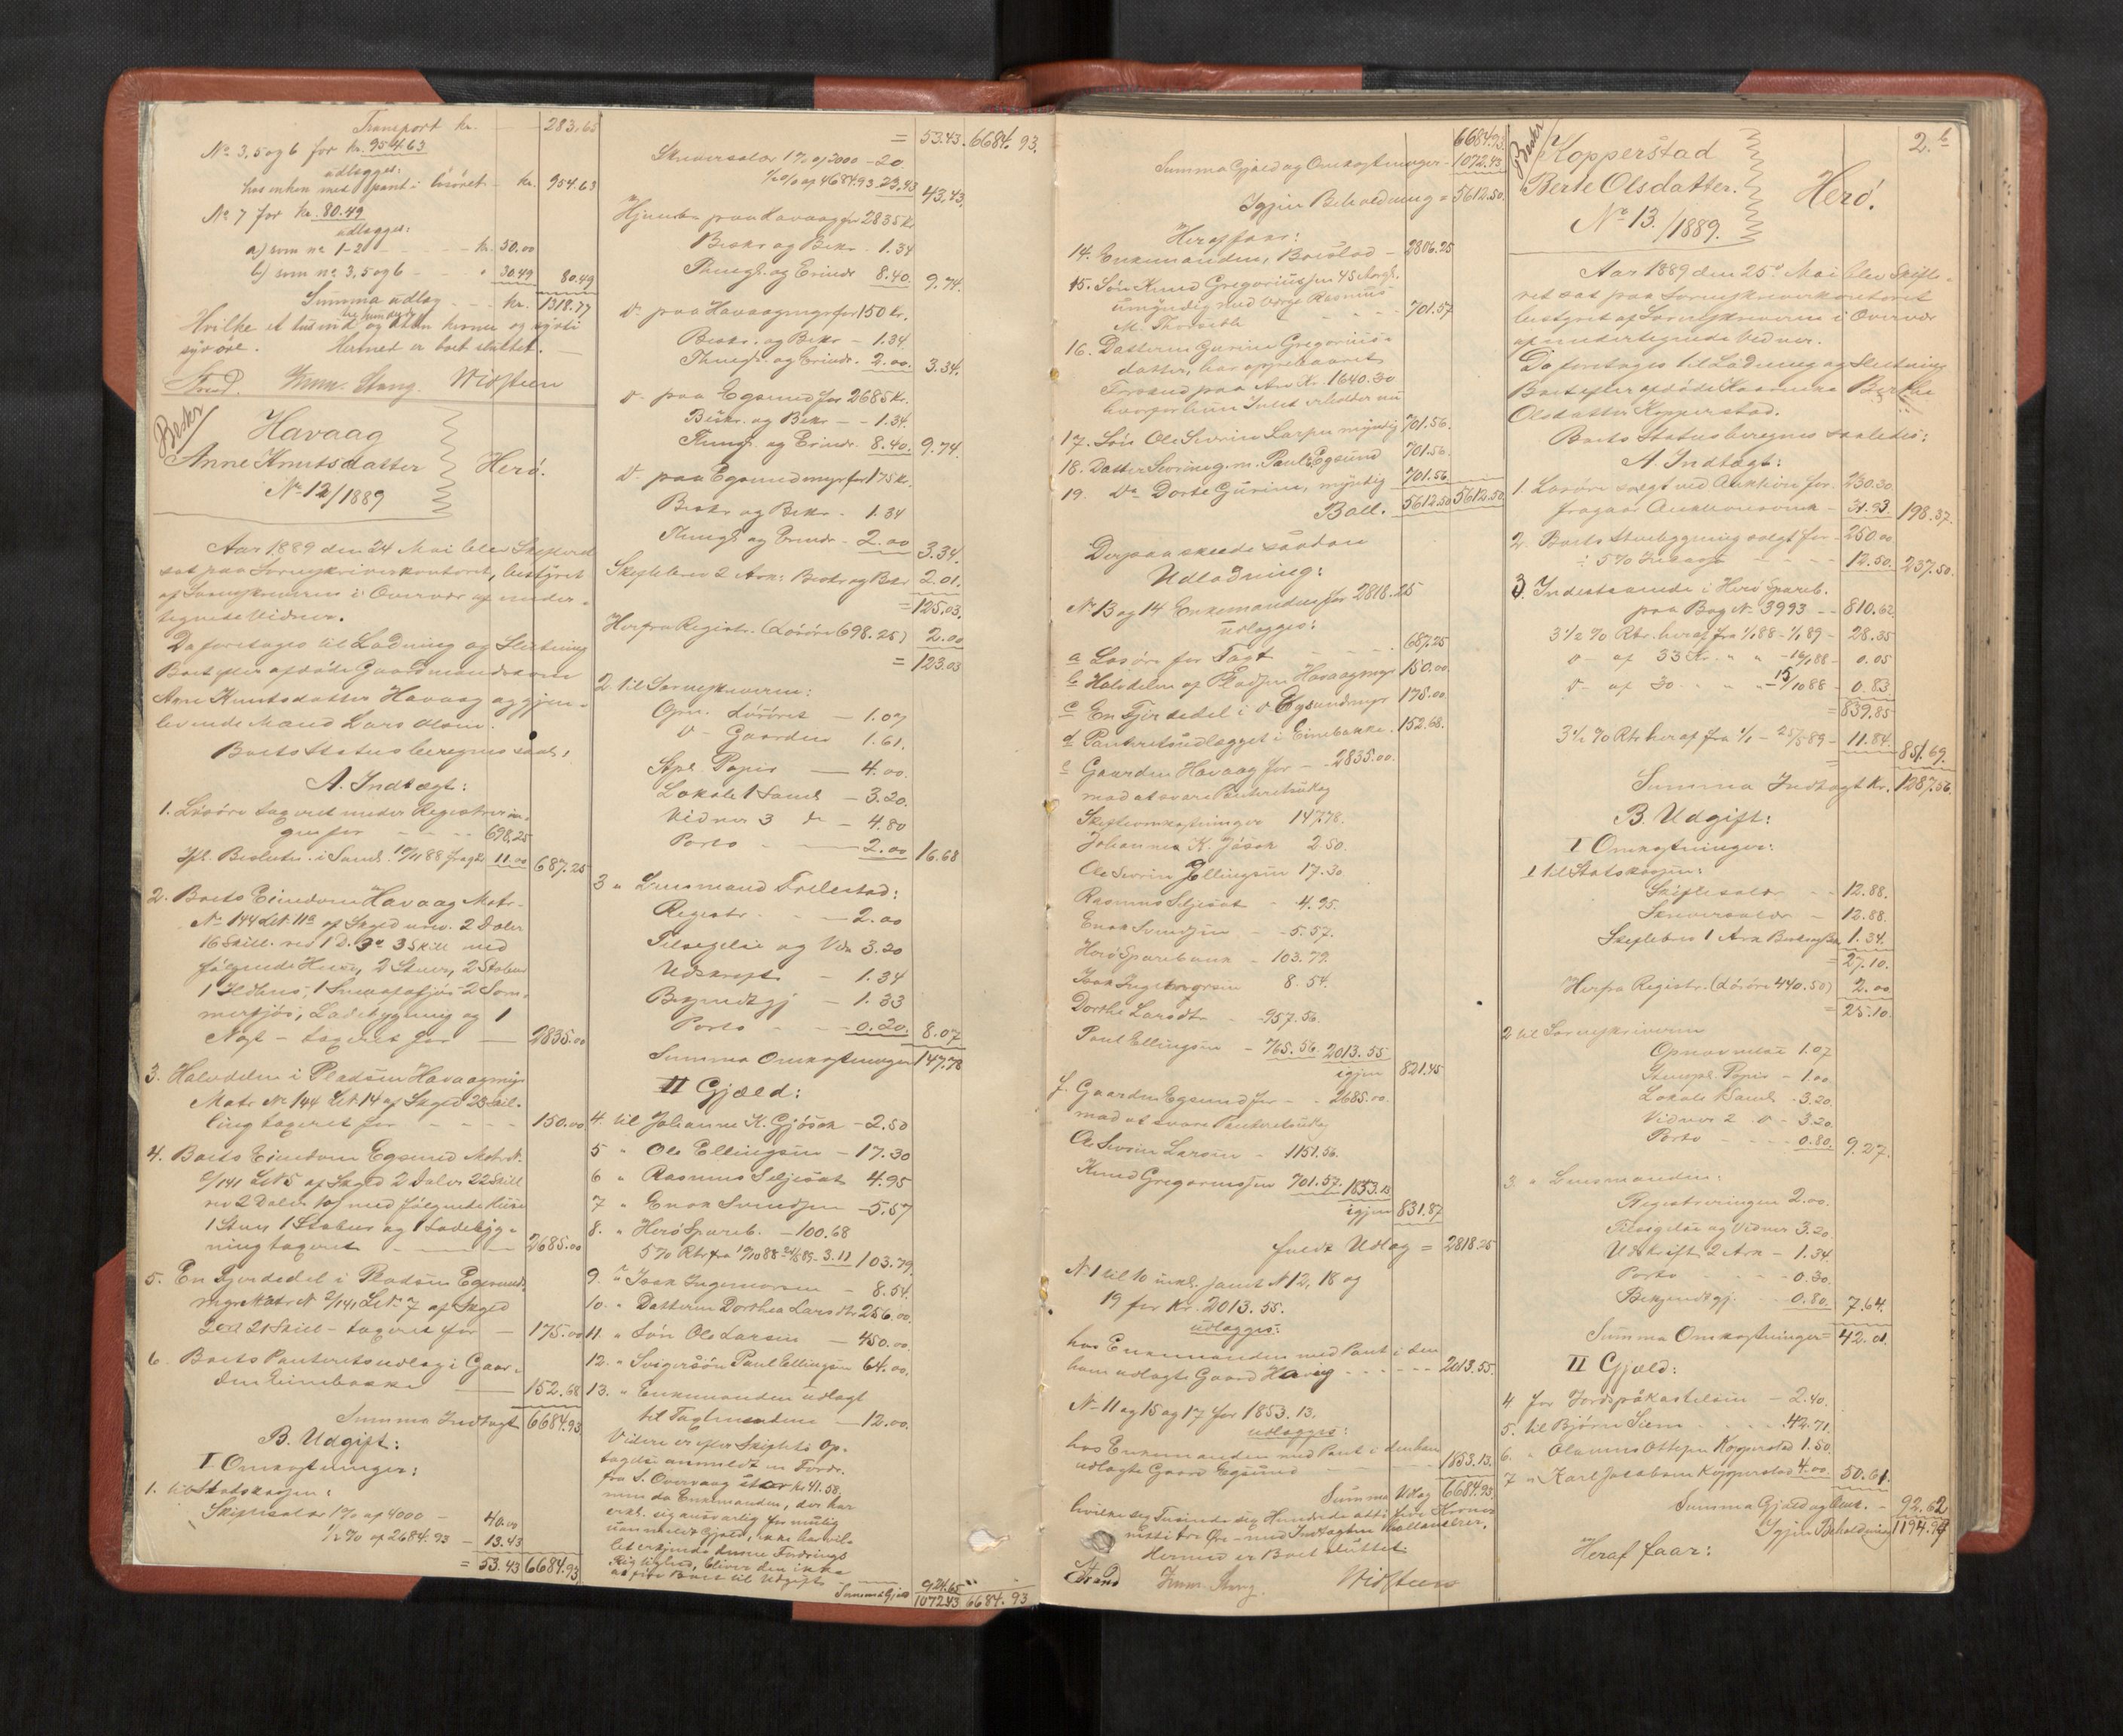 Transport kr. — 283.65
No 3, 5 og 6 for kr. 954.63
udlægges:
hos enken med pant i lösöret - kr. 954.63
No 7 for kr. 80.49
udlægges:
a) som no 1-2 - - - kr. 50.00
b) som no 3, 5 og 6 - - " 30.49 80.49
Summa udlæg - - kr. 1318.77
Hvilke et tusind tre hundrede og atten kroner og sytti
syv öre. Hermed er boet sluttet.
Havaag
Anne Knutsdatter Herö.
No 12/1889
Beskr
Aar 1889 den 24 Mai blev Skifteret
sat paa Sorenskriverkontoret, bestyret
af Sorenskriveren i Overvær af under-
tegnede Vidner.
Da foretoges til Ladning og Slutning
Boet efter afdöde Gaardmandskone
Anne Knutsdatter Havaag og gjen-
levende Mand Lars Olsen.
Boets Status beregnes saal.
A. Indtægt:
1. Lösöre taxeret under Registrerin-
gen for - - - 698.25
11.00 687.25
2. Boets Eiendom Havaag Matr.
No 144 LNo 11a af Skyld urev. 2 Daler
16 Skill. rev 1 D. 3 Skill med
fölgende Huse, 2 Stuer, 2 Stabur
1 Ildhus, 1
merfjös, Ladebygning og 1
Nöst - taxeret for — 2835.00
3. Halvdelen i Pladsen Havaagmyr
Matr No 144 LNo 14 af Skyld 23 Skil-
ling taxeret for - - - 150.00
4. Boets Eiendom Egsund Matr No
141 LNo 5 af Skyld 2 Daler 22 Skill
rev 2 Daler med fölgende Huse
1 Stue 1 Stabur og 1 Ladebyg-
ning taxeret - - - 2685.00
5. En Fjerdedel i Pladsen Egsund-
myr Matr No 2/141 LNo 7 af Skyld
21 Skill - taxeret for — 175.00
6. Boets Panteretsudlæg i Gaar-
den Eineboake — 152.68
Summa Indtægt 6684.93
B. Udgift:
I Omkostninger:
1. til Statskassen:
Skiftesalær 1% af 4000 - 40.00
1/2% af 2684.93 - 13.43
= 53.43 6684.93
= 53.43. 6684.93.
Skriversalær 1% af 2000 - 20
1/2% af 4684.93 - 23.43 43.43.
Hjemler paa Havaag for 2835 kr
Beskr og Bekr. 1.34
Thingl. og Erindr. 8.40. 9.74.
Do paa Havaagmyr for 150 kr.
Beskr. og Bekr - 1.34.
Thingl. og Erindr. 2.00. 3.34.
Do paa Egsund for 2685 kr.
Beskr. og Bekr - - 1.34.
Thingl. og Erindr. 8.40. 9.74.
Do paa Egsundmyr for 175 kr.
Beskr og Bekr - 1.34
Thingl og Erindr - 2.00 3.34.
Skiftebrev 2 Ark: Beskr og Bekr 2.01.
= 125.03.
Herfra Registr. (Lösöre 698.25) 2.00
= 123.03
2 til Sorenskriveren:
Opn. Lösöret — 1.07
Do Gaarden 1.61.
Stpl. Papir — 4.00.
Lokale 1 Samd — 3.20.
Vidner 3 Do — 4.80
Porto — 2.00 16.68
3 " Lensmand Frelestad:
Registr. - - 2.00
Tilsigelse og Vidn 3.20
Udskrift - 1.34
Bekjendtgj — 1.33
Porto - - 0.20. 8.07
Summa Omkostninger 147.78
II Gjæld:
4. til Johanne K. Gjösok - 2.50
5 " Ole Ellingsen - 17.30
6 " Rasmus Seljesæt 4.95
7 " Enok Svendsen - 5.57
8. " Herö Spareb. - 100.68
3.11 103.79.
9. " Isak Ingemorsen - 8.54.
10. " Datteren Dorthea Larsdtr 256.00.
11. " Sön Ole Larsen - 450.00.
12. " Svigersön Paul Ellingsen 64.00.
13. " Enkemanden udlagt
til Taxtmændene — 12.00.
Videre er efter Skiftets Op-
tagelse anmeldt en Fordr.
fra S. Overvaag stor kr 41.58,
men da Enkemanden, der har
erkl. sig ansvarlig for mulig
uanmeldt Gjæld, ikke har vil-
let erkjende denne Fordrings
Rigtighed, bliver den ikke
at före Boet til Udgift
Summa Gjæld 924.65
1072.43 6684.93
6684.93.
Summa Gjæld og Omkostninger - 1072.43
Igjen Beholdning = 5612.50.
Heraf faar:
14. Enkemanden, Boeslod - 2806.25
15. Sön Knud Gregoriussen 45 Aargl.
umyndig med Værge Rasmus
M. - - - 701.57
16. Datteren Gurine Gregorius-
datter, har oppebaaret
Forskud paa Arv Kr. 1640.30
hvorfor hun Intet erholder nu
17. Sön Ole Severin Larsen myndig 701.56.
18. Datter Severine g. m. Paul Egsund 701.56.
19. Do Dorte Gurine, myndig 701.56
Ball. 5612.50 5612.50
Derpaa skeede saadan
Udlodning:
No 13 og 14 Enkemanden for 2818.25
udlægges:
a Lösöre for Taxt - - - 687.25
b Halvdelen af Pladsen Havaagmyr 150.00.
c En Fjerdedel i Do Egsundmyr 175.00.
d Panteretsudlægget i Einebakke. 152.68.
e Gaarden Havaag for - - 2835.00.
mod at svare Panteretsudlæg
Skifteomkostninger 147.78.
Johanne K. Jösok 2.50.
Ole Severin Ellingsen 17.30
Rasmus Seljesæt - 4.95.
Enok Svendsen - - 5.57.
Herö Sparebank - 103.79.
Isak Ingebrigtsen 8.54.
Dorthe Larsdtr - 957.56.
Paul Ellingsen - 765.56. 2013.55
igjen 821.45
f. Gaarden Egsund for - - 2685.00.
mod at svare Panteretsudlæg
Ole Severin Larsen - 1151.56.
Knud Gregoriussen 701.57. 1853.13
igjen 831.87
fuldt Udlæg = 2818.25
No 1 til 10 inkl. samt No 12, 18 og
19 for Kr. 2013.55.
udlægges:
hos Enkemanden med Pant i den
ham udlagte Gaard Havåg - - - - 2013.55.
No 11 og 15 og 17 for 1853.13.
udlægges:
hos Enkemanden med Pant i den ham
udlagte Gaard Egsund 1853.13.
Summa Udlæg 6684.93
hvilke sex Tusinde sex Hundrede otti fire Kroner
nitti tre Öre med Indtægten ballancerer.
Hermed er Boet sluttet
2.b
Beskr
Kopperstad
Berte Olsdatter. Herö.
No 13./1889.
Aar 1889 den 25de Mai blev Skifte-
ret sat paa Sorenskriverkontoret
bestyret af Sorenskriveren i Overvær
af undertegnede Vidner.
Da foretoges til Ladning og Slutning
Boet efter afdöde Berthe
Olsdatter Kopperstad.
Boets Status beregnes saaledes:
A. Indtægt:
1. Lösöre solgt ved Auktion for 230.30
fragaar - 31.93 198.37.
2. Boets Stuebygning solgt for - 250.00
÷ 5% - - - 12.50. 237.50.
3. Indestaaende i Herö Spareb.
paa Bog No 3993 - - 810.62
3 1/2% Rtr. heraf fra 1/1 88 - 1/1 89 - 28.35
Do af 33 Kr. " " 88 - 0.05
Do af 30 " " 15/10 88 - 0.83
= 839.85
3 1/2% Rtr heraf fra 1/1 - 25/5 89 - 11.84. 851.69.
Summa Indtægt Kr. 1287.56.
B. Udgift:
I Omkostninger:
1 til Statskassen:
Skiftesalær - - 12.88.
Skriversalær - 12.88.
Skiftebrev 1 Ark 1.34.
= 27.10.
Herfra Registr. (Lösöre 440.50) 2.00
= 25.10.
2 til Sorenskriveren
Opnævnelse 1.07
Stempl. Papir - 1.00
Lokale 1 Samd - 3.20.
Vidner 2 Do - 3.20.
Porto - - - 0.80. 9.27.
3 " Lensmanden:
Registreringen 2.00.
Tilsigelse og Vidner 3.20.
Udskrift 2 Ark - 1.34.
Porto - - - 0.30.
Bekjendtgj. - 0.80. 7.64.
Summa Omkostninger = 42.01.
II Gjæld:
4 for Jordspåkastelsen - 2.40.
5. til Björn Siem - - - 42.71.
6. " Olaurus Ottesen Kopperstad 1.50.
7 " Karl Jacobsen Kopperstad 4.00 50.61.
Summa Gjæld og Omk. - 92.62
Igjen Beholdning 1194.94
Heraf faar: